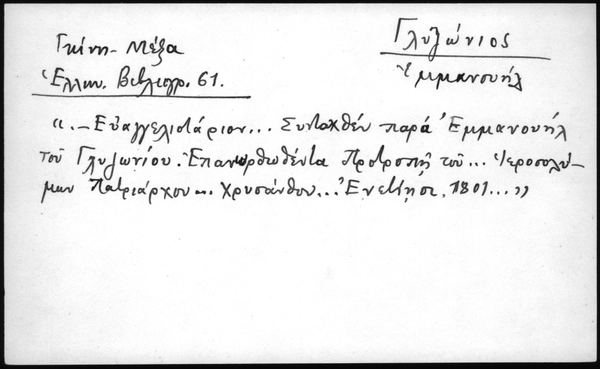 Γκίνη - Μέξα
Ἑλλην. Βιβλιογρ. 61.
Γλυζώνιος
Ἐμμανουήλ
«.—Εὐαγγελιστάριον... Συνταχθέν παρά Ἐμμανουήλ
τοῦ Γλυζωνίου. Ἐπανορθωθέντα Προτροπῇ τοῦ... Ἱεροσολύ-
μων Πατριάρχου... Χρυσάνθου... Ἐνετίῃσι, 1801...»